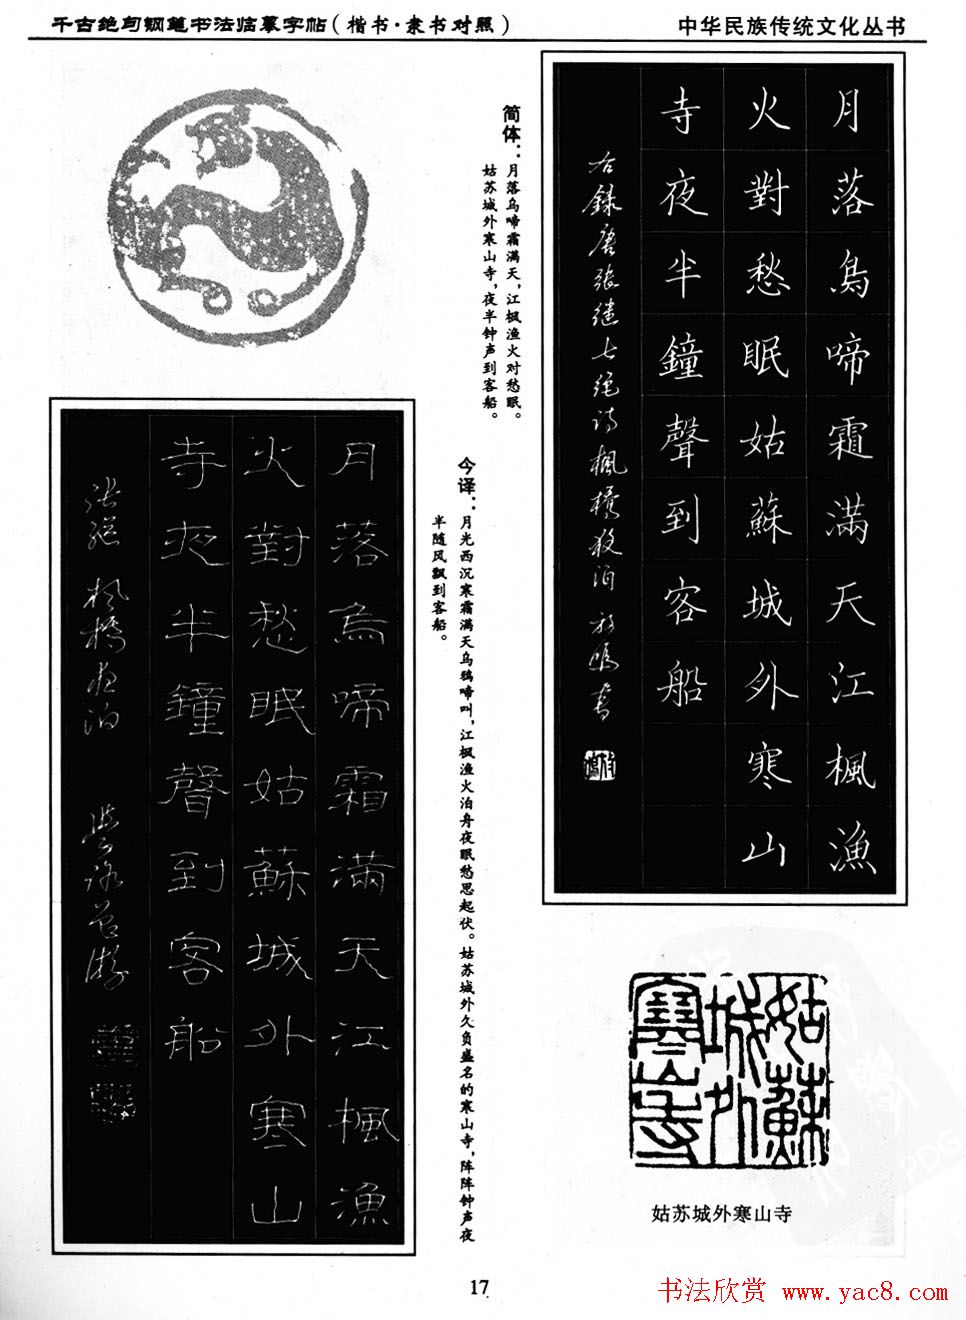 千古绝句钢笔书法临摹字帖(楷书·隶书对照)
中华民族传统文化丛书
月落烏啼霜滿天江楓漁
火對愁眠姑蘇城外寒山
寺夜半鐘聲到客船
右錄唐張繼七絕詩楓橋夜泊
简体:月落乌啼霜满天,江枫渔火对愁眠。
姑苏城外寒山寺,夜半钟声到客船。
今译:月光西沉寒霜满天乌鸦啼叫,江枫渔火泊舟夜眠愁思起伏。姑苏城外久负盛名的寒山寺,阵阵钟声夜
半随风飘到客船。
月落烏啼霜滿天江楓漁
火對愁眠姑蘇城外寒山
寺夜半鐘聲到客船
张继 枫橋夜泊
姑蘇
城外
寒山寺
姑苏城外寒山寺
17
书法欣赏 www.yac8.com